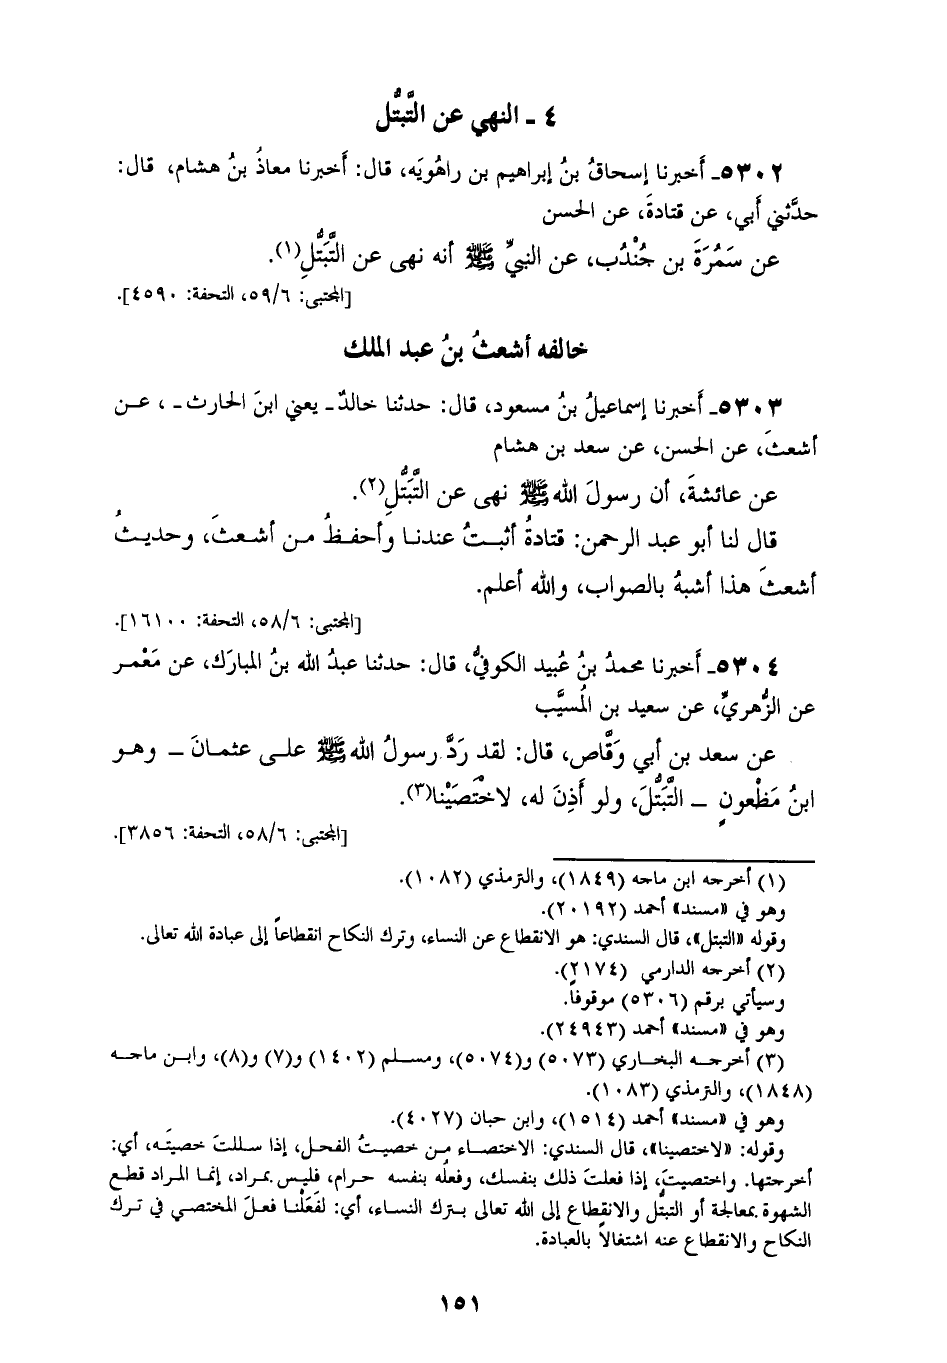 ٤ ـ النهي عن التَّبَتُّل
٥٣٠٢ـ أَخبرنا إسحاقُ بنُ إبراهيم بن راهُويَه، قال: أَخبرنا معاذُ بنُ هشام، قال:
حدَّثني أَبي، عن قتادةَ، عن الحسن
عن سَمُرَةَ بن جُنْدُب، عن النبيِّ ﷺ أنه نهى عن التَّبَتُّلِ(١).
[المجتبى: ٥٩/٦، التحفة: ٤٥٩٠].
خالفه أشعثُ بنُ عبد الملك
٥٣٠٣ـ أَخبرنا إسماعيلُ بنُ مسعود، قال: حدثنا خالدٌ ـ يعني ابنَ الحارث ـ ، عن
أشعثَ، عن الحسن، عن سعد بن هشام
عن عائشةَ، أن رسولَ الله ﷺ نهى عن التَّبَتُّلِ(٢).
قال لنا أبو عبد الرحمن: قتادةُ أثبتُ عندنا وأحفظُ من أشعثَ، وحديثُ
أشعثَ هذا أشبهُ بالصواب، والله أعلم.
[المجتبى: ٥٨/٦، التحفة: ١٦١٠٠].
٥٣٠٤ـ أَخبرنا محمدُ بنُ عُبيد الكوفيُّ، قال: حدثنا عبدُ الله بنُ المبارَك، عن مَعْمر
عن الزُّهريِّ، عن سعيد بن المُسيَّب
عن سعد بن أبي وَقَّاص، قال: لقد رَدَّ رسولُ الله ﷺ على عثمانَ ـ وهو
ابنُ مَظْعونٍ ـ التَّبَتُّلَ، ولو أَذِنَ له، لاخْتَصَيْنا(٣).
[المجتبى: ٥٨/٦، التحفة: ٣٨٥٦].
(١) أخرجه ابن ماجه (١٨٤٩)، والترمذي (١٠٨٢).
وهو في «مسند» أحمد (٢٠١٩٢).
وقوله «التبتل»، قال السندي: هو الانقطاع عن النساء، وترك النكاح انقطاعاً إلى عبادة الله تعالى.
(٢) أخرجه الدارمي (٢١٧٤).
وسيأتي برقم (٥٣٠٦) موقوفاً.
وهو في «مسند» أحمد (٢٤٩٤٣).
(٣) أخرجه البخاري (٥٠٧٣) و(٥٠٧٤)، ومسلم (١٤٠٢) و(٧) و(٨)، وابن ماجه
(١٨٤٨)، والترمذي (١٠٨٣).
وهو في «مسند» أحمد (١٥١٤)، وابن حبان (٤٠٢٧).
وقوله: «لاختصينا»، قال السندي: الاختصاء من خصيتُ الفحل، إذا سللتَ خصيتَه، أي:
أخرجتها. واختصيتَ، إذا فعلتَ ذلك بنفسك، وفعلُه بنفسه حرام، فليس بمراد، إنما المراد قطع
الشهوة بمعالجة أو التبتُّل والانقطاع إلى الله تعالى بترك النساء، أي: لفَعَلْنا فعلَ المختصي في ترك
النكاح والانقطاع عنه اشتغالاً بالعبادة.
١٥١